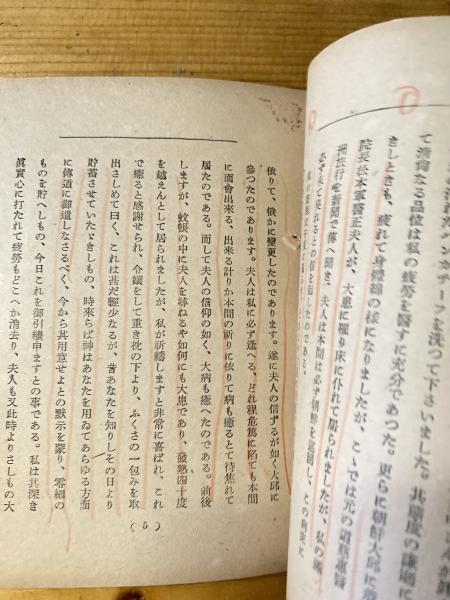 ンカチーフを洗つて下さいました。其態度の謙遜に
なる品位は私の疲勞を醫す充分であつた。更らに朝鮮大邱に
きしときも、疲れて身體綿の樣になりましたが、こゝでは元の道慈惠醫
院長松本軍醫正夫人が、大患に罹り床に仆れて居られましたが、私の滿
洲旅行を新聞で傳へ聞き、夫人は本間は必ず朝鮮を通過し、この病床に
必ず來て呉れるとの信を起したのである。
依りて、俄かに變更したのであります。遂に夫人の信ずるが如く大邱に
參つたのであります。夫人は私に必ず逢へる、どれ程危篤に陷ても本間
に面會出來る、出來る計りか本間の祈りに依りて病も癒ると待焦れて
居たのである。而して夫人の信仰の如く、大病も癒へたのである。前後
しますが、蚊帳の中に夫人を尋ねるや如何にも大患であり、發熱四十度
を越えんとして居られましたが、私が祈禱しますと非常に喜ばれ、これ
で癒ると感謝せられ、令孃をして重き枕の下より、ふくさの一包みを取
出さしめて曰く、これは甚だ輕少なるが、昔あなたを知りしその日より
貯蓄させていたゞきしもの、時來らば神はあなたを用ゐてあらゆる方面
に傳道に御遣しなさるべく、今から其用意せよとの默示を蒙り、零細の
ものを貯へしもの、今日これを御引繼申ますとの事である。私は其深き
眞實心に打たれて疲勞もどこへか消去り、夫人も又此時よりさしもの大
(5)